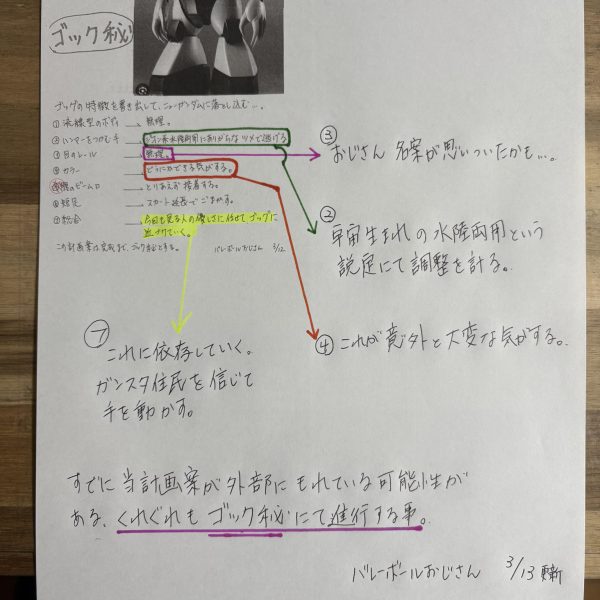 ゴック秘
ゴッグの特徴を書き出して、ニューガンダムに落とし込む…。
① 流線型のボディ → 無理。
② ハンマーをつかむ手 → ジオン系水陸両用にありがちなツメで逃げる
③ 目のレール → 無理。
④ カラー → どうにかできる気がする。
腹のビーム口 → とりあえず接着する。
⑥ 短足 → スカート延長でごまかす。
⑦ 総合 → 今回も見る人の優しさに任せて ゴッグに
近づけていく。
この計画案は完成まで、ゴック秘とする。 バレーボールおじさん 3/12
③
おじさん 名案が思いついたかも…。
②
宇宙生まれの水陸両用という
説定にて調整を計る。
④ これが意外と大変な気がする。
⑦
これに依存していく。
ガンスタ住民を信じて
手を動かす。
すでに当計画案が外部にもれている可能性が
ある、くれぐれもゴック秘にて進行する事。
バレーボールおじさん 3/13 更新